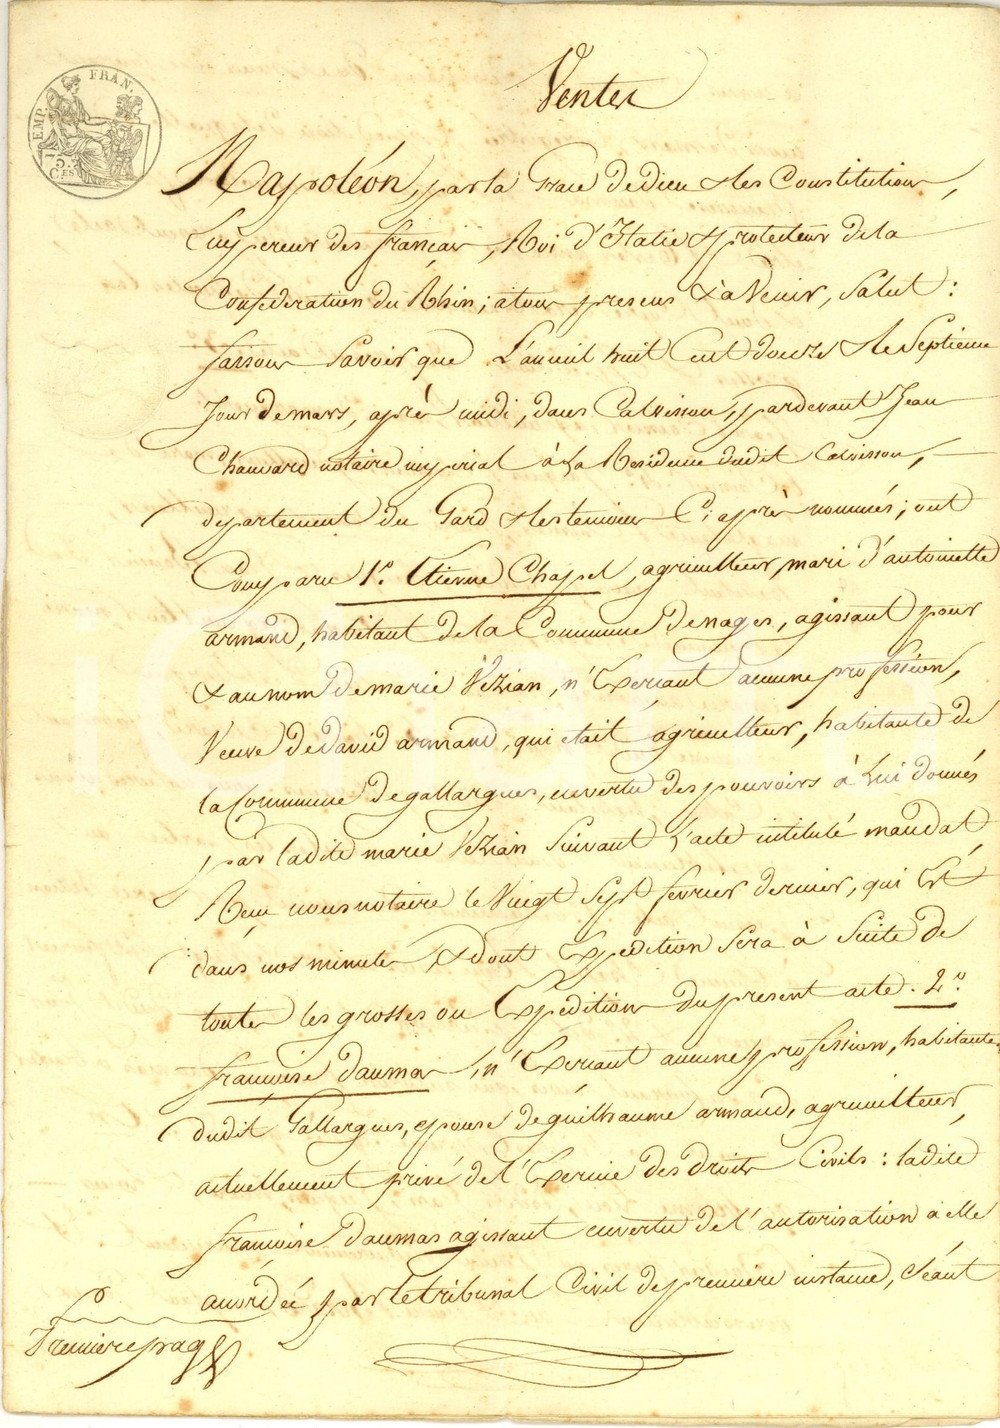 EMP. FRAN.
75 C.ES
Ventes
Napoléon, par la Grace de dieu & les Constitutions,
Empereur des français, Roi d'Italie & protecteur de la
Confédération du Rhin; à tous presens & à Venir, Salut:
faisons Savoir que L'an mil huit Cent douze & le Septieme
Jour de mars, après midi, dans Calvisson, pardevant Jean
Chauvard notaire impérial à La Residence dudit Calvisson,
département du Gard & les temoins Ci après nommés; ont
Comparu 1.º Etienne Chapel, agriculteur, mari d'antoinette
armand, habitant de la Commune de nages, agissant pour
& au nom de marie Vézian, n'Exerçant aucune profession,
Veuve de david armand, qui était agriculteur, habitante de
la Commune de gallargues, en vertu des pouvoirs à Lui donnés
par ladite marie Vézian Suivant L'acte intitulé mandat
Reçu nous notaire le Vingt Sept février dernier, qui Est
dans nos minutes, & dont Expédition Sera à Suite de
toutes les grosses ou Expéditions du present acte. 2.º
françoise daumas, n'Exerçant aucune profession, habitante
dudit Gallargues, epouse de guilhaume armand, agriculteur,
actuellement privé de l'Exercice des droits Civils: ladite
françoise daumas agissant en vertu de l'autorisation à elle
accordée par le tribunal Civil de première instance, Séant
Premiere page